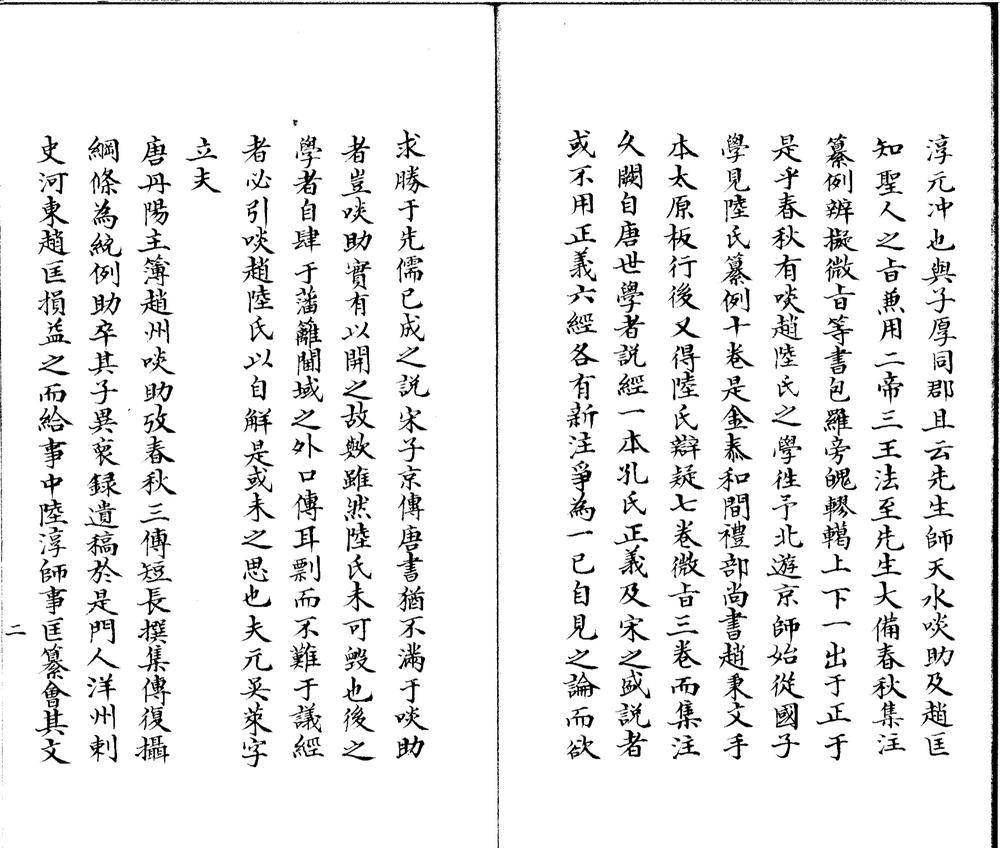 淳元冲也與子厚同郡且云先生師天水啖助及趙匡
知聖人之旨兼用二帝三王法至先生大備春秋集注
纂例辨擬微旨等書包羅旁魄轇轕上下一出于正于
是乎春秋有啖趙陸氏之學徃予北遊京師始從國子
學見陸氏纂例十卷是金泰和間禮部尚書趙秉文手
本太原板行後又得陸氏辯疑七卷微旨三卷而集注
久闕自唐世學者説經一本孔氏正義及宋之盛説者
或不用正義六經各有新注爭為一已自見之論而欲
求勝于先儒已成之説宋子京傳唐書猶不滿于啖助
者豈啖助實有以開之故歟雖然陸氏未可毀也後之
學者自肆于藩籬閫域之外口傳耳剽而不難于議經
者必引啖趙陸氏以自解是或未之思也夫元吳萊字
立夫
唐丹陽主簿趙州啖助攷春秋三傳短長撰集傳復攝
綱條為統例助卒其子異裒録遺稿於是門人洋州刺
史河東趙匡損益之而給事中陸淳師事匡纂會其文
二